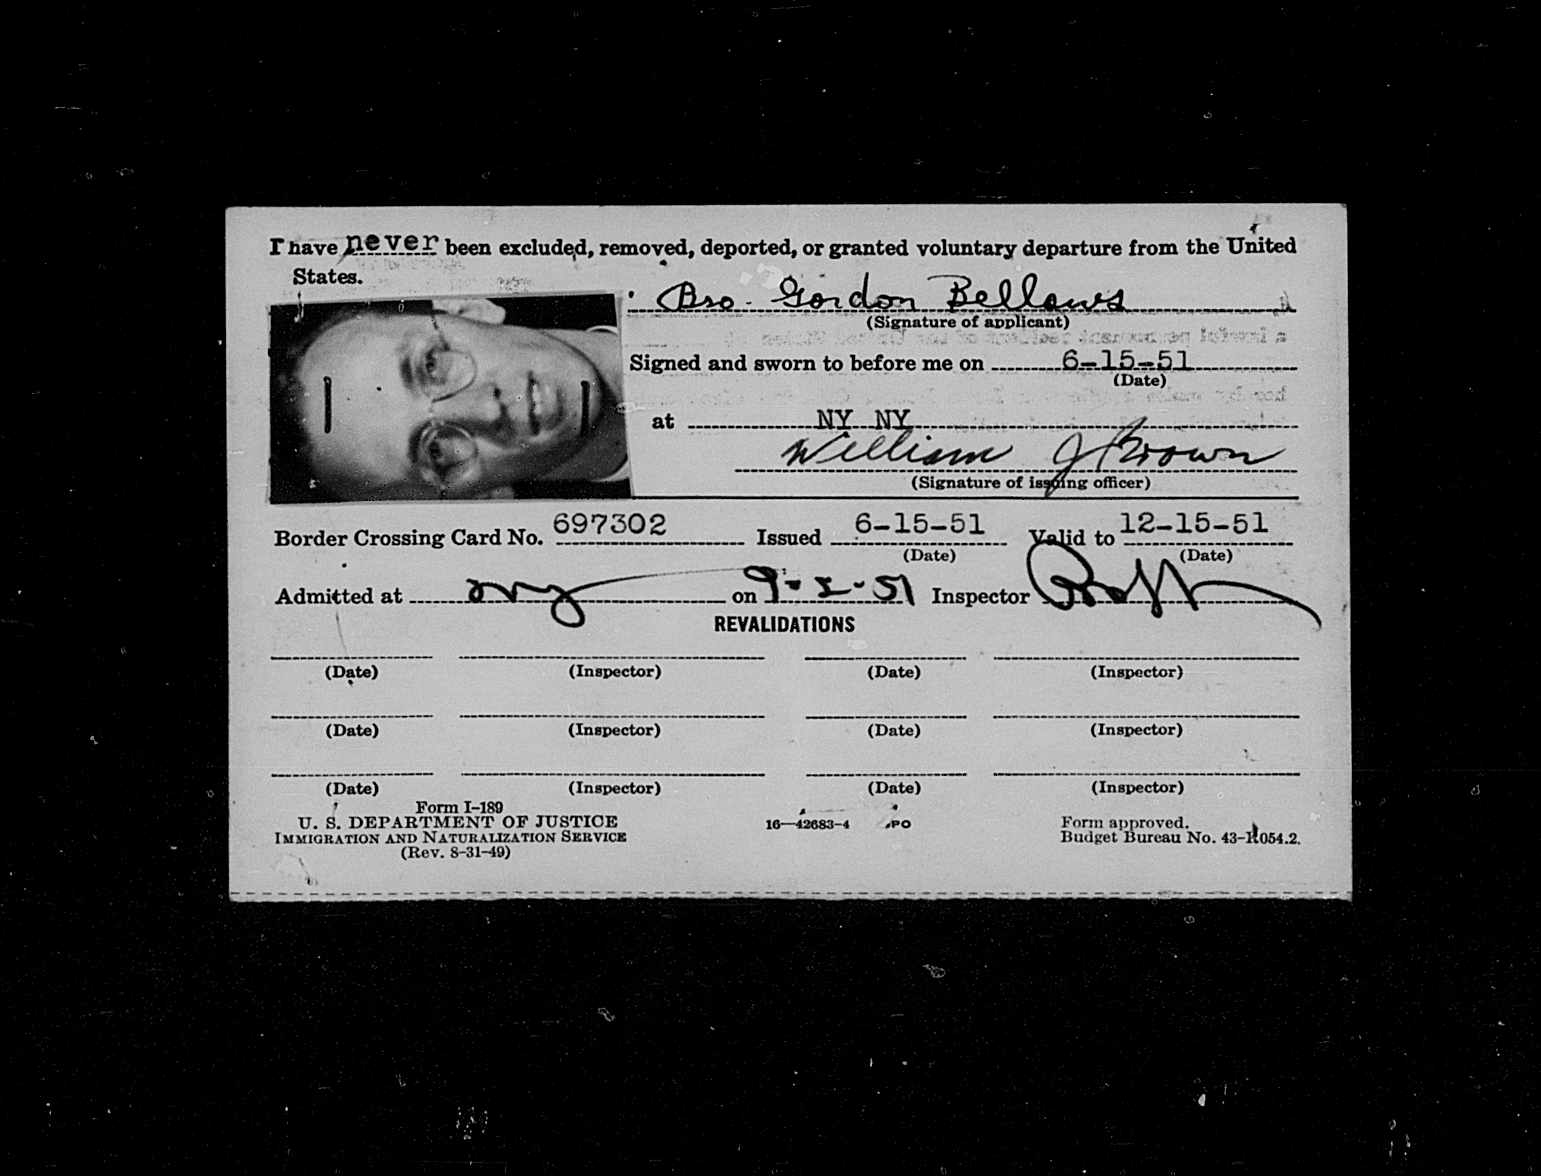 I have never been excluded, removed, deported, or granted voluntary departure from the United
States.
Bro. Gordon Bellows
(Signature of applicant)
Signed and sworn to before me on 6-15-51
(Date)
at NY NY
William J Brown
(Signature of issuing officer)
Border Crossing Card No. 697302 Issued 6-15-51 Valid to 12-15-51
(Date) (Date)
Admitted at NY on 9-2-51 Inspector
REVALIDATIONS
(Date) (Inspector) (Date) (Inspector)
(Date) (Inspector) (Date) (Inspector)
(Date) (Inspector) (Date) (Inspector)
Form I-189
U. S. DEPARTMENT OF JUSTICE
IMMIGRATION AND NATURALIZATION SERVICE
(Rev. 8-31-49)
16—42683-4 GPO
Form approved.
Budget Bureau No. 43-R054.2.